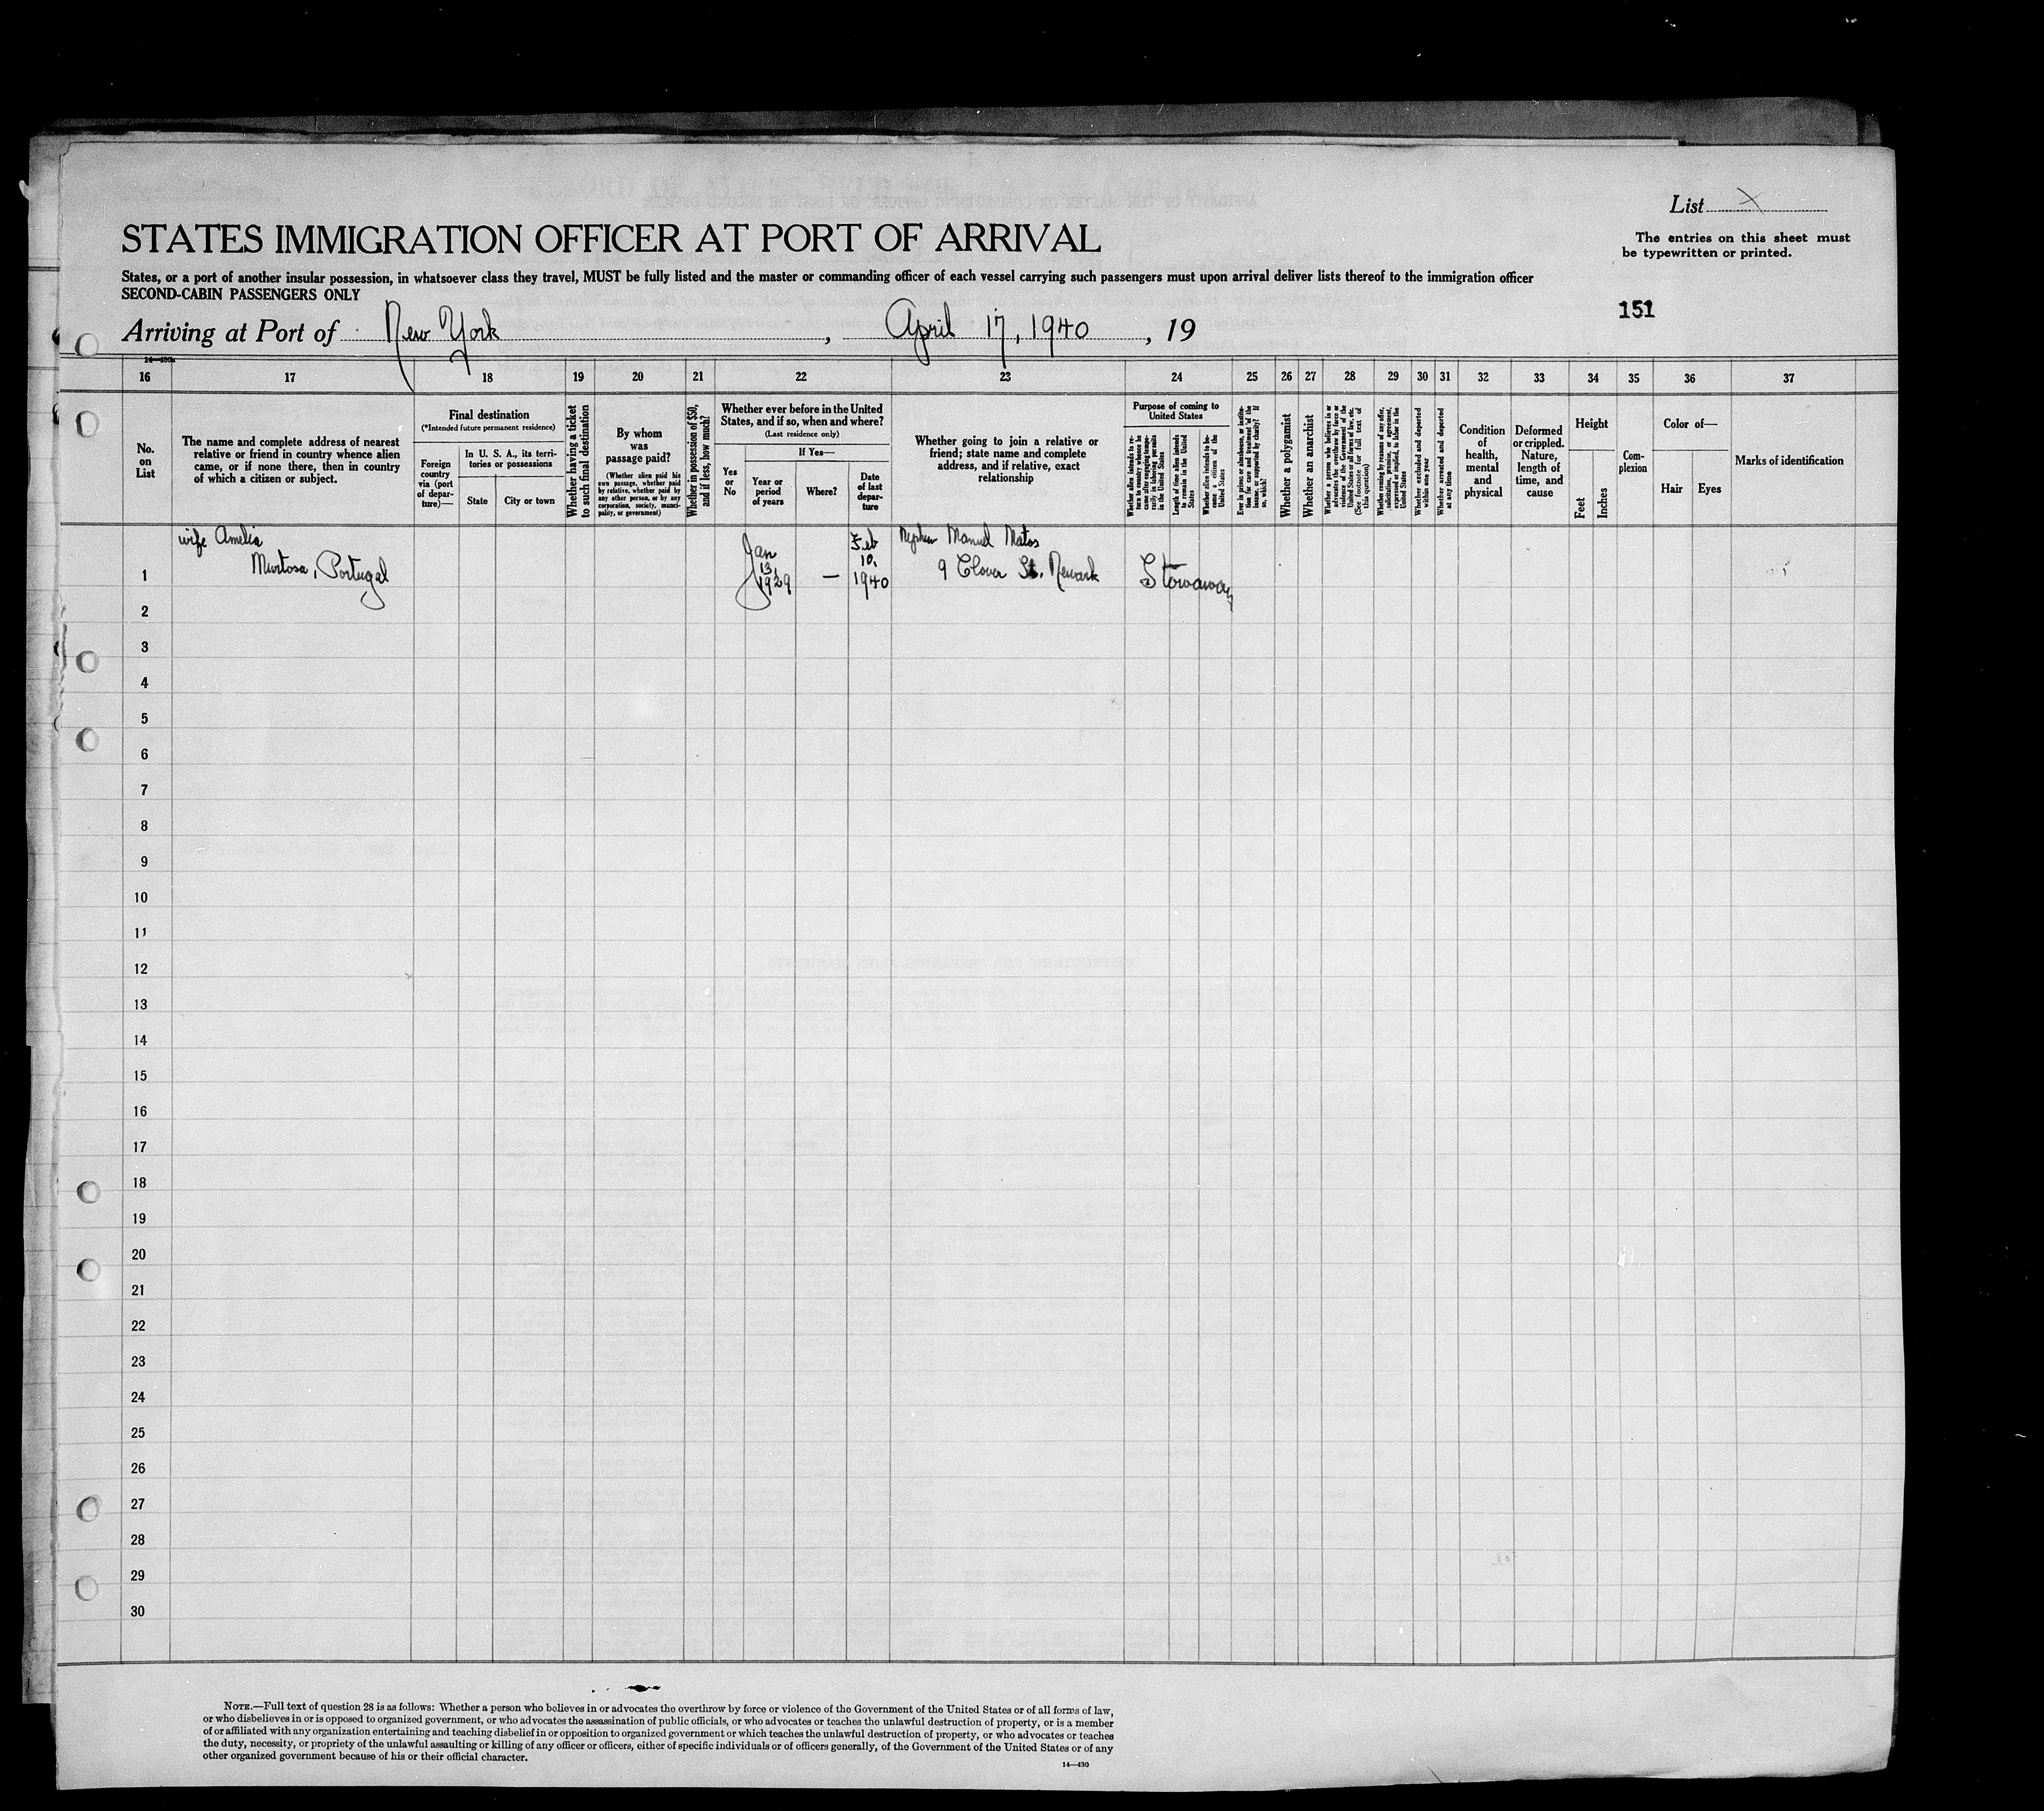 List X
STATES IMMIGRATION OFFICER AT PORT OF ARRIVAL
The entries on this sheet must
be typewritten or printed.
States, or a port of another insular possession, in whatsoever class they travel, MUST be fully listed and the master or commanding officer of each vessel carrying such passengers must upon arrival deliver lists thereof to the immigration officer
SECOND-CABIN PASSENGERS ONLY
151
Arriving at Port of New York, April 17, 1940, 19
14—430a
16 17 18 19 20 21 22 23 24 25 26 27 28 29 30 31 32 33 34 35 36 37
No.
on
List
The name and complete address of nearest
relative or friend in country whence alien
came, or if none there, then in country
of which a citizen or subject.
Final destination
(*Intended future permanent residence)
Foreign
country
via (port
of depar-
ture)—
In U. S. A., its terri-
tories or possessions
State
City or town
Whether having a ticket
to such final destination
By whom
was
passage paid?
(Whether alien paid his
own passage, whether paid
by relative, whether paid by
any other person, or by any
corporation, society, munici-
pality, or government)
Whether in possession of $50,
and if less, how much?
Whether ever before in the United
States, and if so, when and where?
(Last residence only)
Yes
or
No
If Yes—
Year or
period
of years
Where?
Date
of last
depar-
ture
Whether going to join a relative or
friend; state name and complete
address, and if relative, exact
relationship
Purpose of coming to
United States
Whether alien intends to re-
turn to country whence he
came after engaging tempo-
rarily in laboring pursuits
in the United States
Length of time alien intends
to remain in the United
States
Whether alien intends to be-
come a citizen of the
United States
Ever in prison or almshouse, or institu-
tion for care and treatment of the
insane, or supported by charity? If
so, which?
Whether a polygamist
Whether an anarchist
Whether a person who believes in or
advocates the overthrow by force or
violence of the Government of the
United States or all forms of law, etc.
(See footnote for full text of
this question)
Whether coming by reasons of any offer,
solicitation, promise, or agreement,
expressed or implied, to labor in the
United States
Whether excluded and deported
within one year
Whether arrested and deported
at any time
Condition
of
health,
mental
and
physical
Deformed
or crippled.
Nature,
length of
time, and
cause
Height
Feet
Inches
Com-
plexion
Color of—
Hair
Eyes
Marks of identification
wife Amelia
Murtosa, Portugal
Jan
13,
1929
—
Feb
10,
1940
Nephew Manuel Matos
9 Clover St. Newark
Stowaway
1
2
3
4
5
6
7
8
9
10
11
12
13
14
15
16
17
18
19
20
21
22
23
24
25
26
27
28
29
30
NOTE.—Full text of question 28 is as follows: Whether a person who believes in or advocates the overthrow by force or violence of the Government of the United States or of all forms of law,
or who disbelieves in or is opposed to organized government, or who advocates the assassination of public officials, or who advocates or teaches the unlawful destruction of property, or is a member
of or affiliated with any organization entertaining and teaching disbelief in or opposition to organized government or which teaches the unlawful destruction of property, or who advocates or teaches
the duty, necessity, or propriety of the unlawful assaulting or killing of any officer or officers, either of specific individuals or of officers generally, of the Government of the United States or of any
other organized government because of his or their official character.
14—430